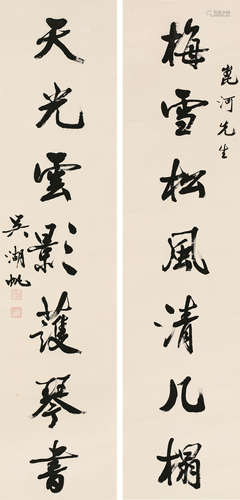 崑河先生
梅雪松風清几榻
天光雲影護琴書
吳湖帆